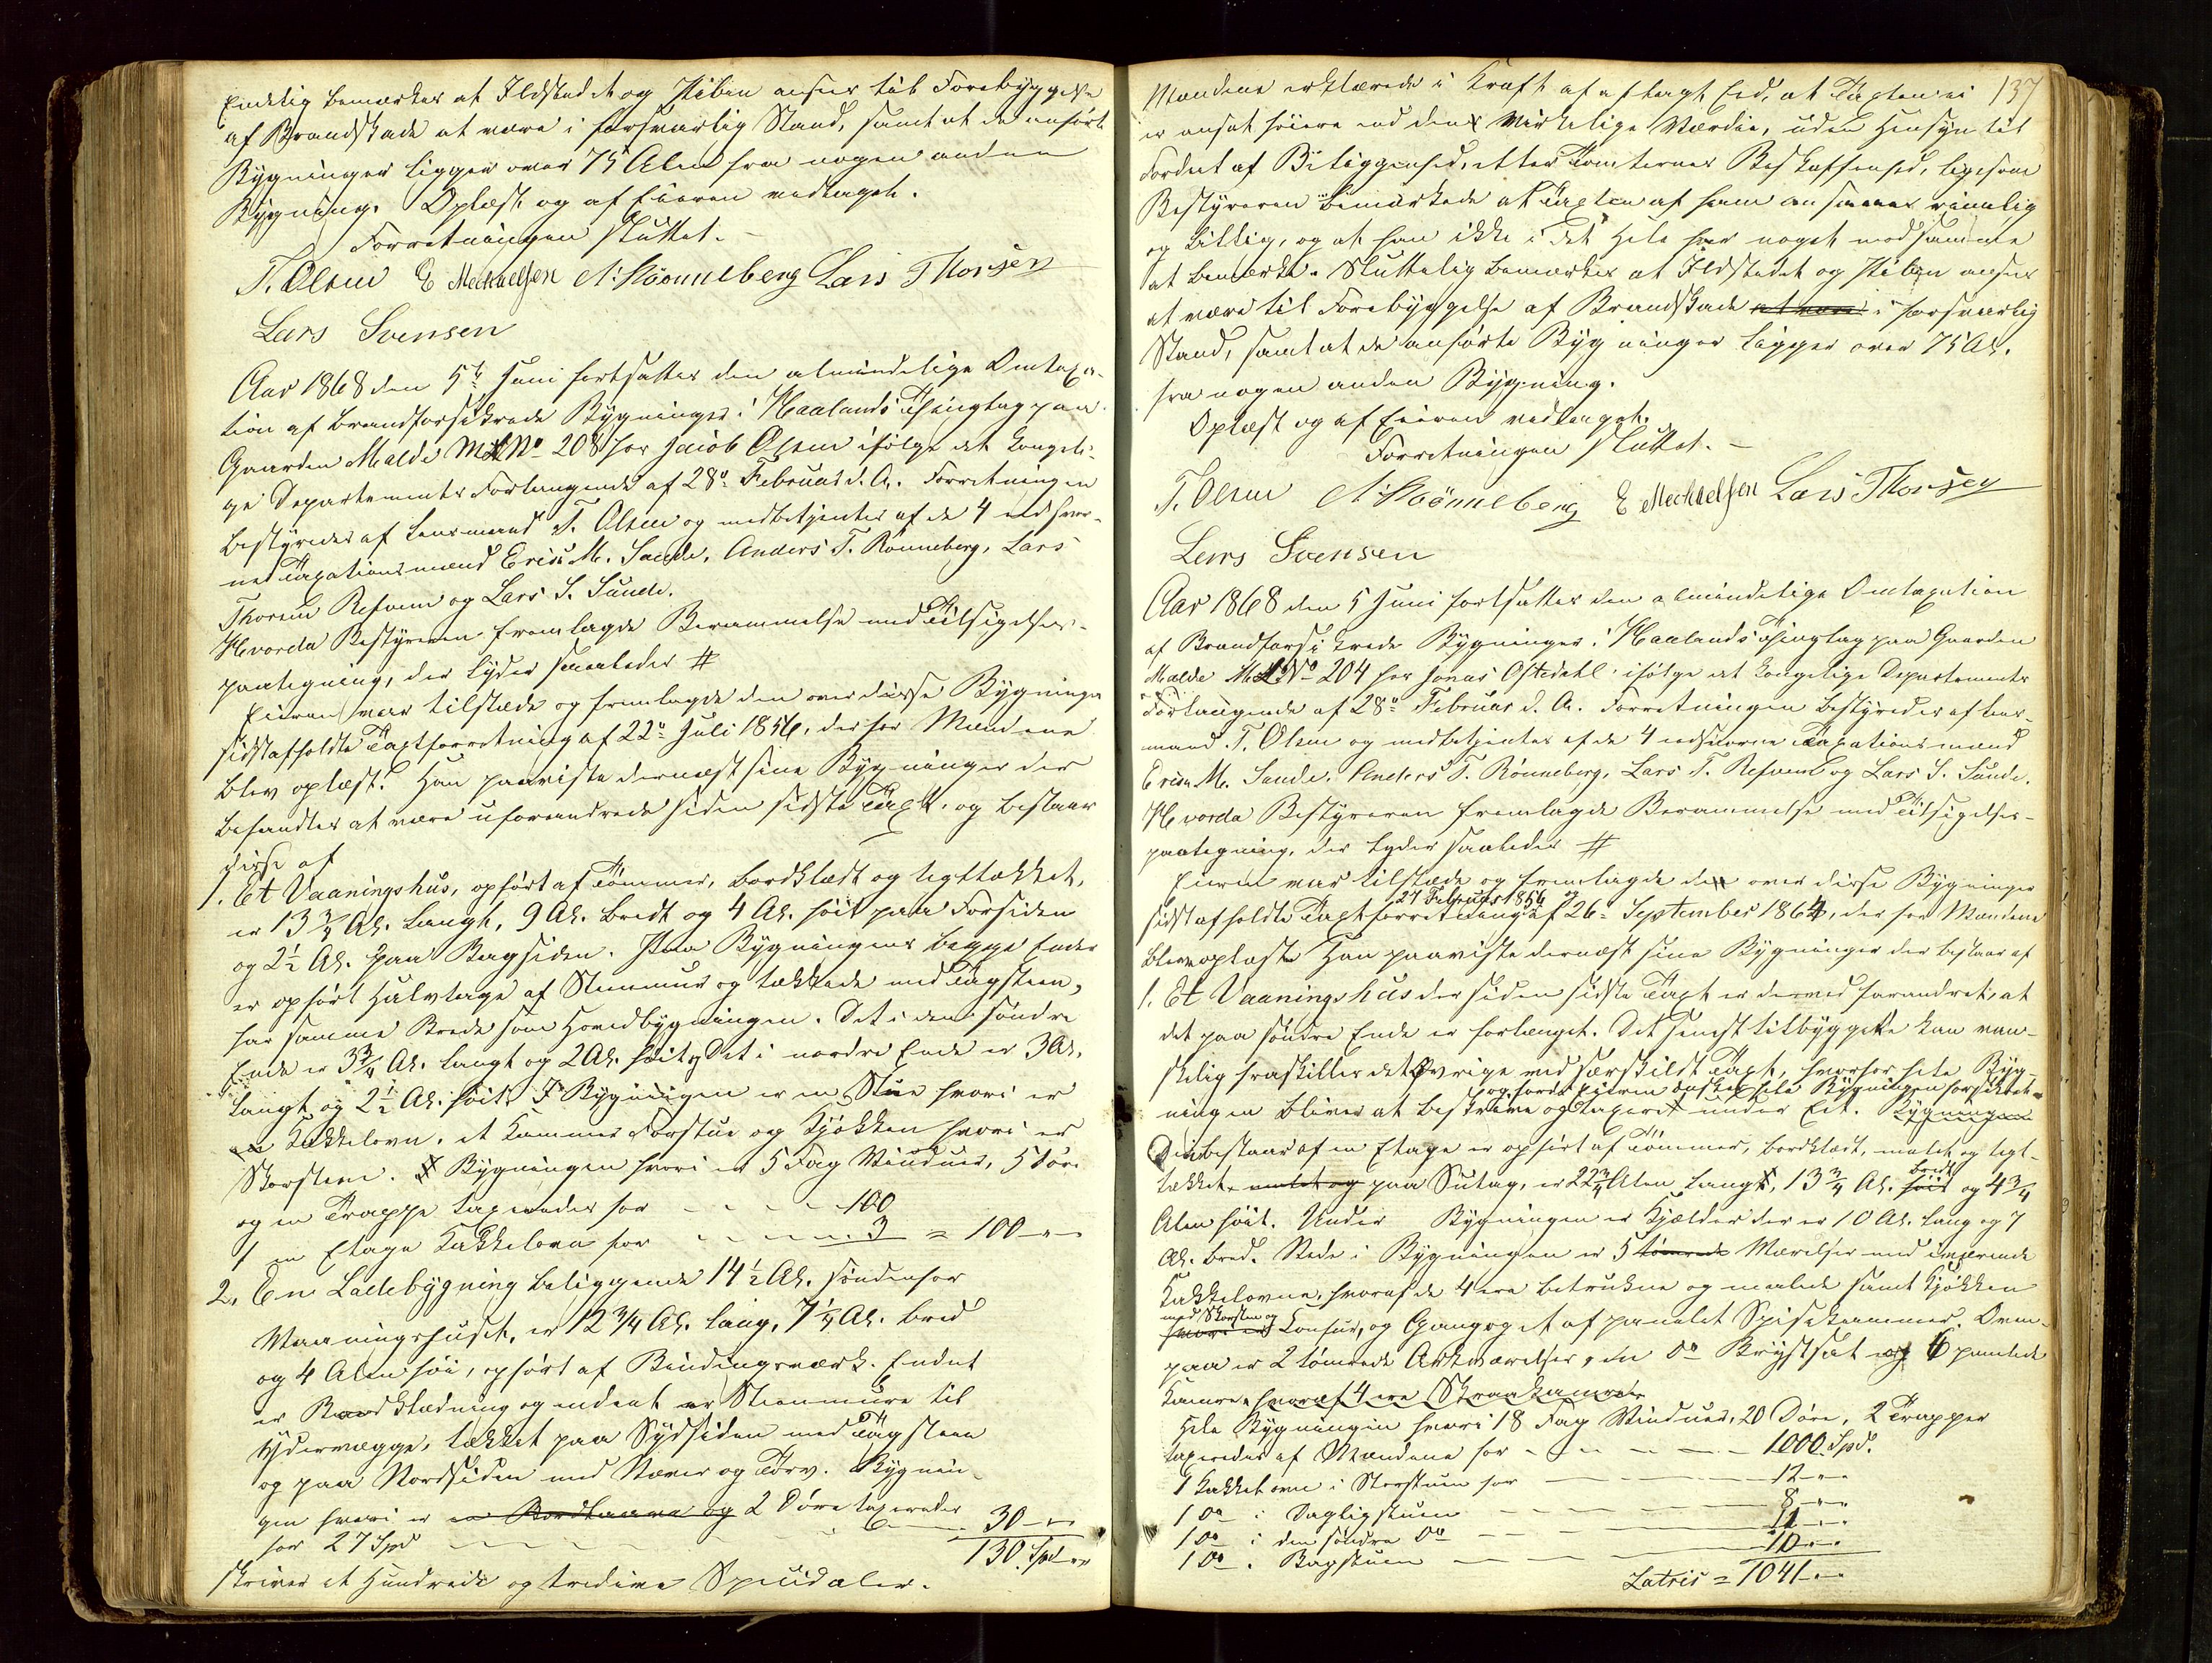 Endelig bemærkes at Ildstedet og Piben ansees til Forebyggelse
af Brandskade at være i forsvarlig Stand, samt at de anførte
Bygninger ligger over 75 Alen fra nogen anden
Bygning. Oplæst og af Eieren vedtaget.
Forretningen sluttet. -
T. Olsen E Mechaelsen A. Rønneberg Lars Thorsen
Lars Svensen
Aar 1868 den 5te Juni fortsattes den almindelige Omtaxa-
tion af brandforsikrede Bygninger i Haalands Thinglag paa
Gaarden Malde M. No 208 hos Jacob Olsen ifølge det Kongeli-
ge Departements Forlangende af 28de Februar d. A. Forretningen
bestyredes af Lensmand T. Olsen og medbetjentes af de 4 edsvor-
ne Taxationsmænd Erich M. Sande, Anders T. Rønneberg, Lars
Thorsen Refsem og Lars S. Sunde.
Hvorda Bestyreren fremlagde Berammelse med Tilsigelses-
paategning, der lyder saaledes #
Eieren var tilstæde og fremlagde den over disse Bygninger
sidstafholdte Taxtforretning af 22de Juli 1856, der for Mændene
blev oplæst. Han paaviste dernæst sine Bygninger der
befandtes at være uforandrede siden sidste Taxt. og bestaar
disse af
1. Et Vaaningshus, opført af Tømmer, bordklædt og tegltækket,
er 13 3/4 Al. langt, 9 Al. bredt og 4 Al. høit paa Forsiden
og 2 1/2 Al. paa Bagsiden. Paa Bygningens begge Ender
er opført Halvtage af Steenmuur og tækkede med Tagsteen,
har samme Brede som Hovedbygningen. Det i den søndre
Ende er 3 3/4 Al. langt og 2 Al. høit, Det i nordre Ende er 3 Al.
langt og 2 1/2 Al. høit. I Bygningen er en Stue hvori er
en Kakkelovn, et Kammer Forstue og Kjøkken hvori er
Skorsteen. Bygningen hvori er 5 Fag Vinduer, 5 Døre
og en Trappe taxeredes for - - - - 100
1 en Etage Kakkelovn for - - - - 3 = 100 - "
2. En Ladebygning beliggende 14 1/2 Al. søndenfor
Vaaningshuset, er 12 3/4 Al. lang, 7 1/4 Al. bred
og 4 Alen høi, opført af Bindingsværk. Endeel
er Bordklædning og endeel er Steenmure til
Ydervægge, tækket paa Sydsiden med Tagsteen
og paa Nordsiden med Næver og Tørv. Bygnin-
gen hvori er en Bordlaave og 2 Døre taxeredes
for 27 Spd - - - - 30 - "
130 Spd "
skriver et Hundrede og tredive Speciedaler.
137
Mændene erklærede i Kraft af aflagt Eed, at Taxten ei
er ansat høiere end den virkelige Værdie, uden Hensyn til
Fordeel af Beliggenhed, eller Tomternes Beskaffenhed, ligesom
Bestyreren bemærkede at Taxten af ham ansaaes rimelig
og billig, og at han ikke i det Hele har noget mod samme
at bemærke. Sluttelig bemærkes at Ildstedet og Piben ansees
at være til Forebyggelse af Brandskade at være i forsvarlig
Stand, samt at de anførte Bygninger ligger over 75 Al.
fra nogen anden Bygning.
Oplæst og af Eieren vedtaget.
Forretningen sluttet. -
T. Olsen A. Rønneberg E Mechaelsen Lars Thorsen
Lars Svensen
Aar 1868 den 5 Juni fortsattes den almindelige Omtaxation
af brandforsikrede Bygninger i Haalands Thinglag paa Gaarden
Malde M. L. No 204 hos Jonas Oftedahl ifølge det Kongelige Departements
Forlangende af 28de Februar d. A. Forretningen bestyredes af Lens-
mand T. Olsen og medbetjentes af de 4 edsvorne Taxationsmænd
Erich M. Sande, Anders T. Rønneberg, Lars T. Refsem og Lars S. Sunde.
Hvorda Bestyreren fremlagde Berammelse med Tilsigelses-
paategning, der lyder saaledes #
Eieren var tilstæde og fremlagde den over disse Bygninger
27 Februar 1854 og
sidst afholdte Taxtforretning af 26de September 1864, der for Mændene
blev oplæst. Han paaviste dernæst sine Bygninger der bestaar af
1. Et Vaaningshus der siden sidste Taxt er derved forandret, at
det paa søndre Ende er forlænget. Det senest tilbyggede kan van-
skelig fraskilles det Øvrige ved særskildt Taxt, hvorfor hele Byg-
og fordi Eieren ønsker hele Bygningen forsikret
ningen bliver at beskrive og taxeret under Eet. Bygningen
Den bestaar af en Etage er opført af Tømmer, bordklædt, malet og tegl-
tækket malet og paa Sutag, er 22 3/4 Alen langt, 13 3/4 Al. høit bredt og 4 3/4
Alen høit. Under Bygningen er Kjælder der er 10 Al. lang og 7
Al. bred. Nede i Bygningen er 5 tømrede Værelser med iværende
Kakkelovne, hvoraf de 4 ere betrukne og malede samt Kjøkken
med Skorsten og
hvori er Comfur, og Gang og et af panelet Spisekammer. Oven-
paa er 2 tømrede Arkværelser, en do Brystsal og 6 panelede
Kamre, hvoraf 4 ere Skraakamre
Hele Bygningen hvori 18 Fag Vinduer, 20 Døre, 2 Trapper
taxeredes af Mændene for - - - - 1000 Spd.
1 Kakkelovn i Storstuen for - - - 12 - "
1 do i Dagligstuen - - - 8 - "
1 do i den søndre do - - - 11 - "
1 do i Bagstuen - - - 10 - "
Latris = 1041 - "